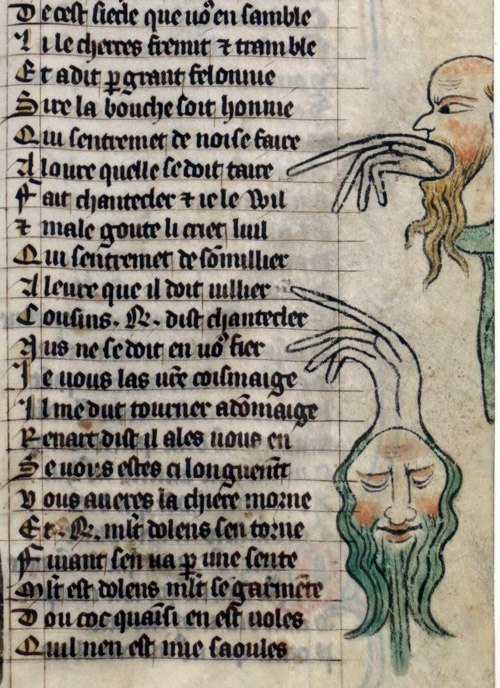 De cest siecle que uoꝰ en samble
Li lecherres fremit ⁊ tramble
Et a dit ꝑ grant felonnie
Sire la bouche soit honnie
Qui sentremet de noise faire
A loure quelle se doit taire
Fait chantecler ⁊ ie le vuil
⁊ male goute li criet luil
Qui sentremet de sōmillier
A leure que il doit uillier
Cousins .R. dist chantecler
Nus ne se doit en uoꝰ fier
Je uous las ur̄e coisinaige
Il me dut tourner a dōmaige
Renart dist il ales uous en
Se uous estes ci longuem̄t
Vous aueres la chiere morne
Et .R. ml̄t dolens sen torne
Fuiant sen ua ꝑ une sente
Ml̄t est dolens ml̄t se garmēte
Dou coc quainsi en est uoles
Quil nen est mie saoules